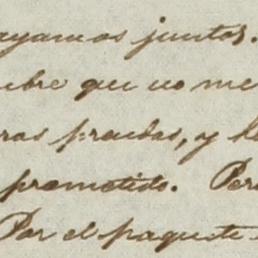 ayamos juntos.
que no me
prendas, y
prometido. Per
Por el paquete